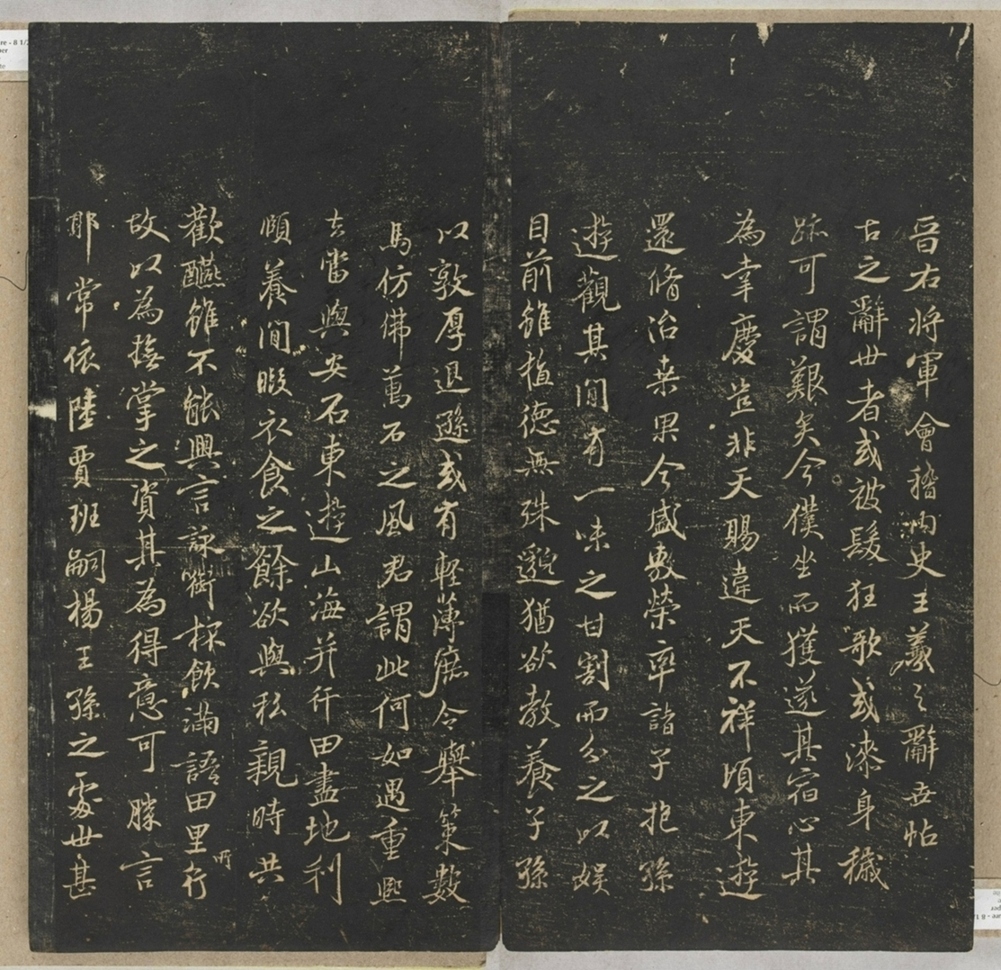 晉右將軍會稽內史王羲之辭世帖
古之辭世者或被髮狂歌或漆身穢
跡可謂艱矣今僕坐而獲遂其宿心其
為幸慶豈非天賜違天不祥頃東遊
還脩治桑果今盛敷榮率諸子抱孫
遊觀其間有一味之甘割而分之以娛
目前雖植德無殊邈猶欲教養子孫
以敦厚退遜或有輕薄庶令舉策數
馬仿佛萬石之風君謂此何如遇重熙
去當與安石東遊山海并行田盡地利
頤養閒暇衣食之餘欲與私親時共
歡讌雖不能興言詠銜杯飲滿語田里所行
故以為撫掌之資其為得意可勝言
耶常依陸賈班嗣楊王孫之處世甚